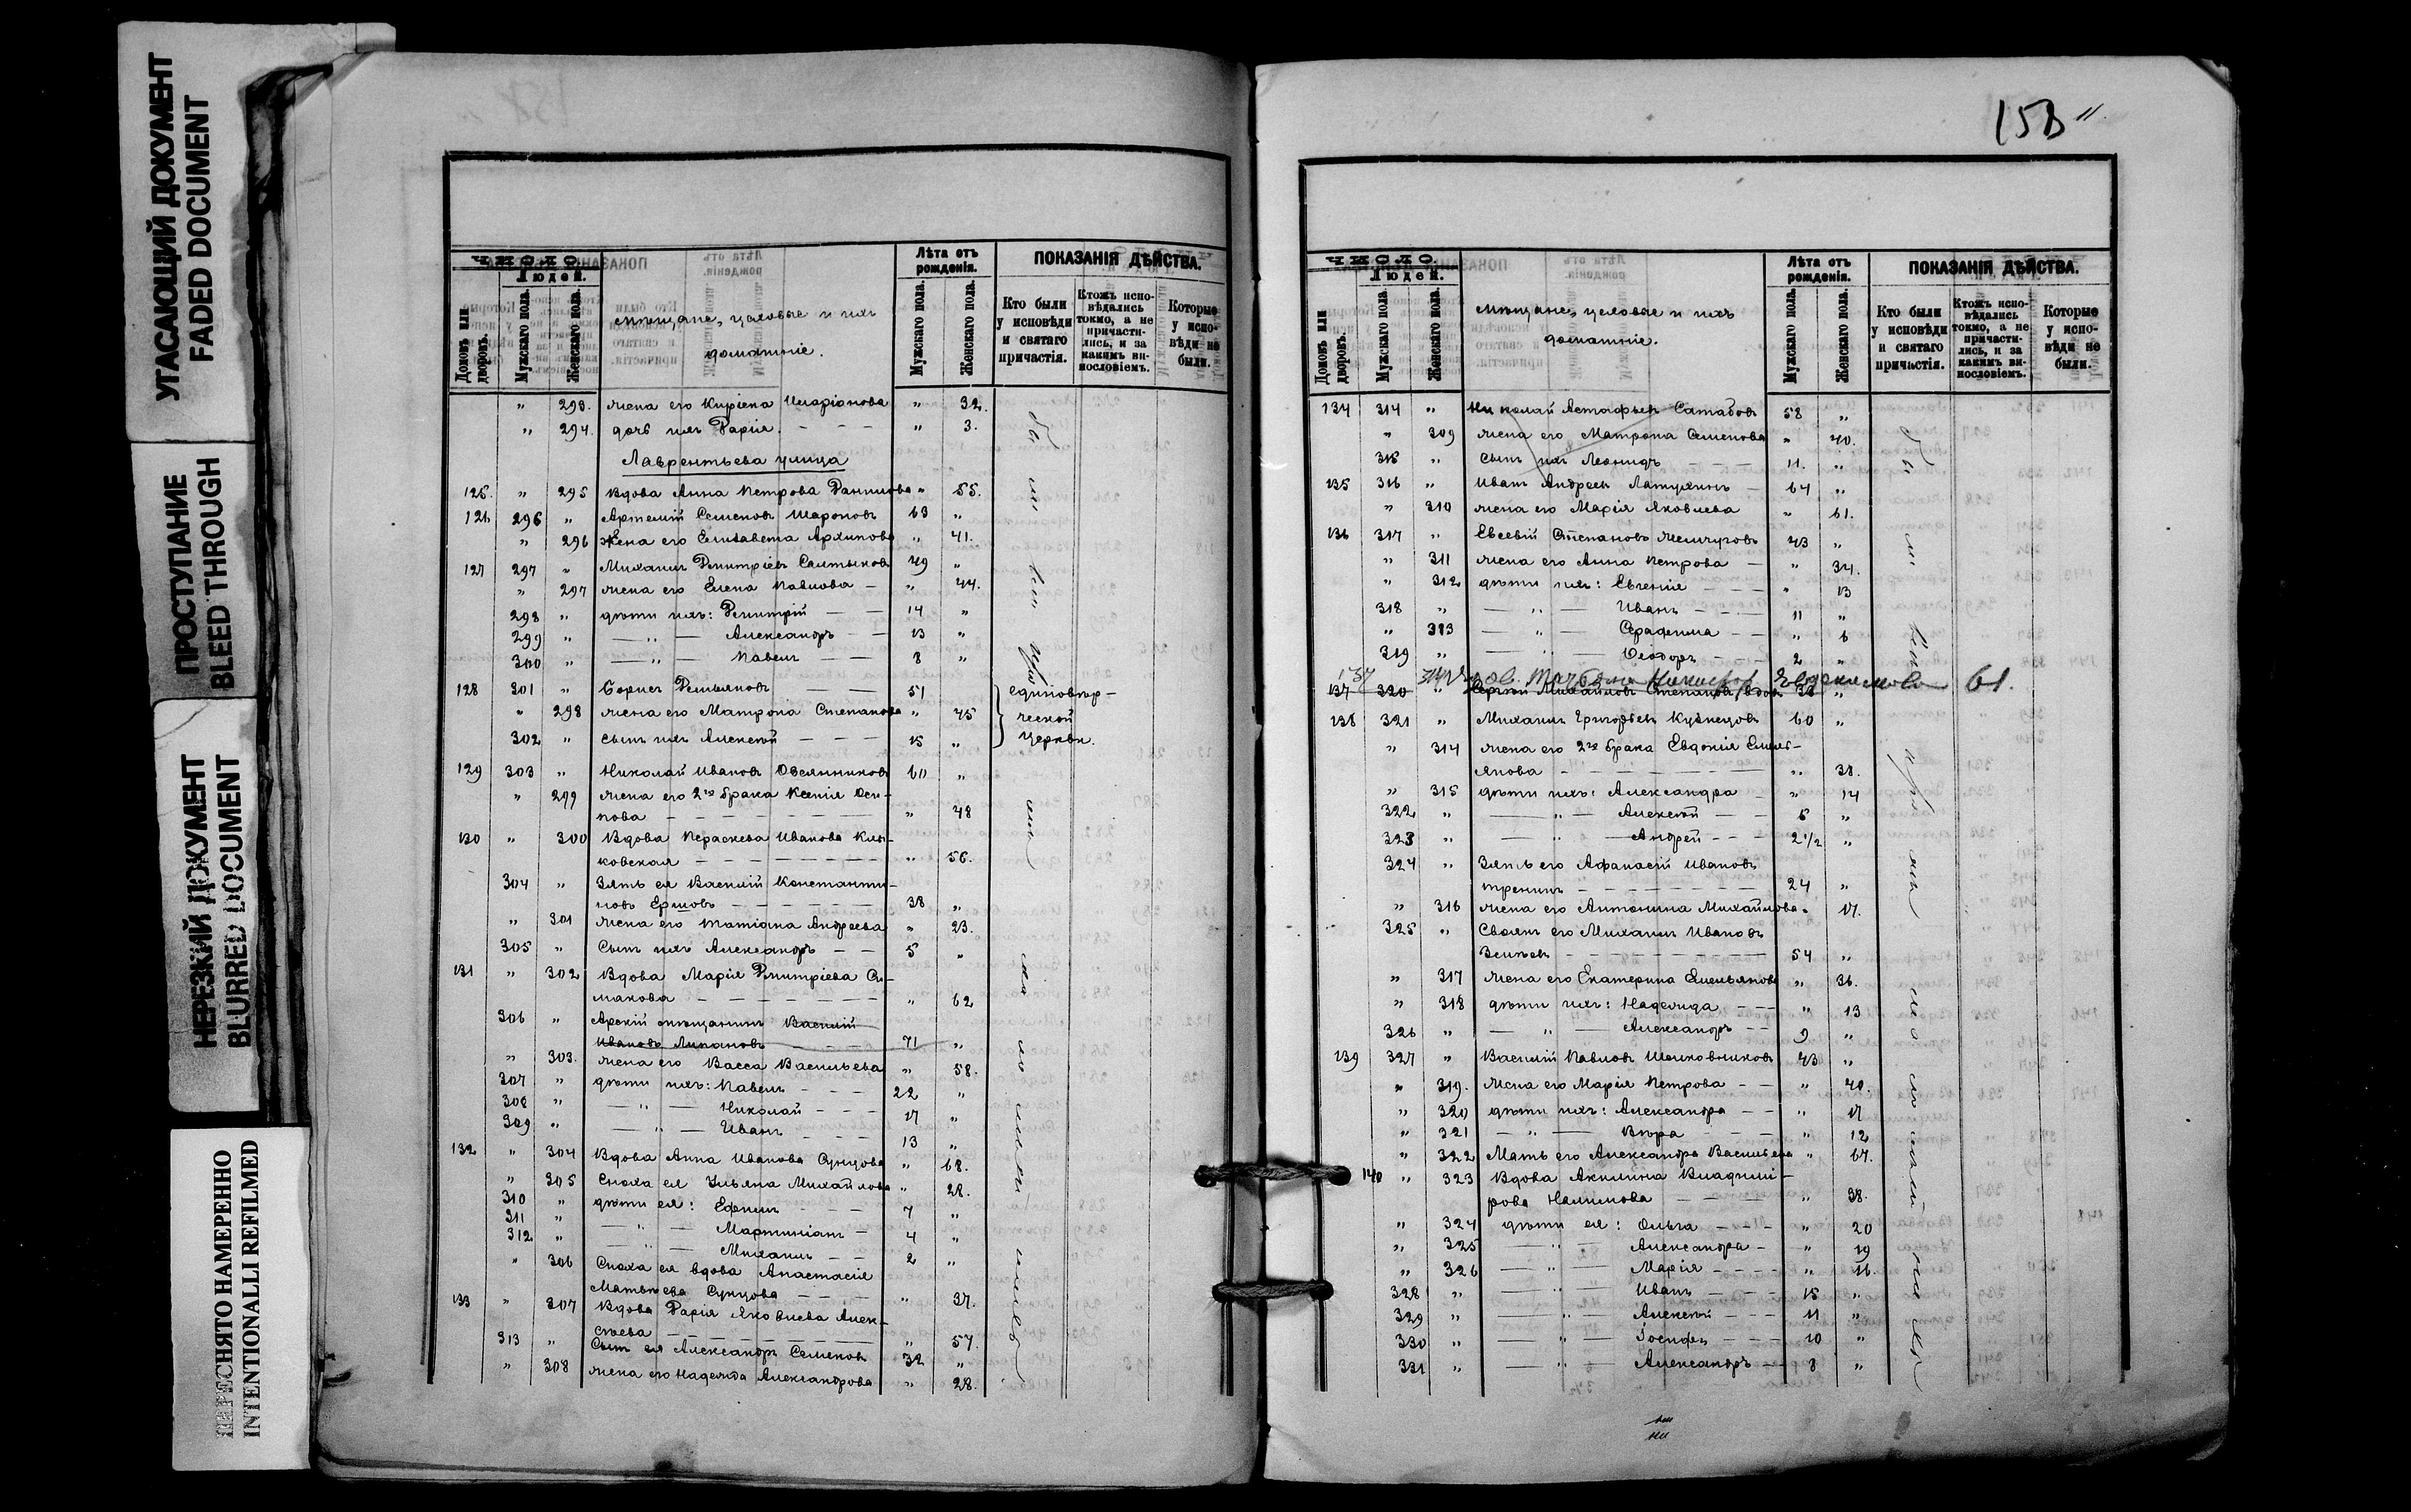 УГАСАЮЩИЙ ДОКУМЕНТ
FADED DOCUMENT
ПРОСТУПАНИЕ
BLEED THROUGH
НЕРЕЗКИЙ ДОКУМЕНТ
BLURRED DOCUMENT
ПЕРЕСНЯТО НАМЕРЕННО
INTENTIONALLI REFILMED
ЧИСЛО
Людей.
Домовъ или дворовъ.
Мужскаго пола.
Женскаго пола.
мѣщане, цеховые и ихъ
домашніе.
Лѣта отъ рожденія.
Мужскаго пола.
Женскаго пола.
ПОКАЗАНІЯ ДѢЙСТВА.
Кто были у исповѣди и святаго причастія.
Ктожъ испо-вѣдались токмо, а не причасти-лись, и за какимъ ви-нословіемъ.
Которые у испо-вѣди не были.
" 293. жена его Киріена Иларіонова " 32.
" 294. дочь ихъ Дарія. — — — " 3.
Лаврентьева улица
125. " 295 Вдова Анна Петрова Данилова " 55.
126 296 " Артемій Семеновъ Шароновъ 63 "
" 296 Жена его Елизавета Архипова " 41.
127 297 " Михаилъ Димитріевъ Салтыковъ 49 "
" 297 жена его Елена Павлова — " 44.
298 " дѣти ихъ: Димитрій — — 14 "
299 " — " — Александръ — — 13 "
300 " — " — Павелъ — — 8 "
128 301 " Борисъ Демьяновъ — — 51 " единовѣр-
" 298 жена его Матрона Степанова " 45 ческой
302 " сынъ ихъ Алексѣй — — — 15 " церкви.
129 303 " Николай Ивановъ Овсянниковъ 60 "
" 299 жена его 2го брака Ксенія Оси-
пова — — — — — — " 48
130 " 300 Вдова Параскева Иванова Кли-
ковская — — — — — — " 56.
304 " Зять ея Василій Константи-
новъ Ершовъ — — — — — 38 "
" 301 жена его Татіана Андреева " 23.
305 " Сынъ ихъ Александръ — 5 "
131 " 302 Вдова Марія Димитріева Си-
макова — — — — — — " 62
306 " Арскій мѣщанинъ Василій
Ивановъ — — — 71 "
" 303. жена его Васса Васильева " 58.
307 " дѣти ихъ: Павелъ — — — 22 "
308 " — " — Николай — — — 17 "
309 " — " — Иванъ — — — 13 "
132 " 304 Вдова Анна Иванова Сунцова " 68.
" 305 Сноха ея Ульяна Михайлова " 28.
310 " дѣти ея: Ефимъ — — — 7 "
311 " — " — Мартиніанъ — 4 "
312 " — " — Михаилъ — — 2 "
" 306 Сноха ея вдова Анастасія
Матвѣева Сунцова — — — " 37.
133 " 307 Вдова Дарія Яковлева Алек-
сѣева — — — — — — " 57.
313 " Сынъ ея Александръ Семеновъ 32 "
" 308 жена его Надежда Александрова " 28.
158"
ЧИСЛО.
Людей.
Домовъ или дворовъ.
Мужскаго пола.
Женскаго пола.
мѣщане, цеховые и ихъ
домашніе.
Лѣта отъ рожденія.
Мужскаго пола.
Женскаго пола.
ПОКАЗАНІЯ ДѢЙСТВА.
Кто были у исповѣди и святаго причастія.
Ктожъ испо-вѣдались токмо, а не причасти-лись, и за какимъ ви-нословіемъ.
Которые у испо-вѣди не были.
134 314 " Николай Астафьевъ 58 "
" 309 жена его Матрона Семенова " 40.
315 " сынъ ихъ Леонидъ — — — 11. "
135 316 " Иванъ Андреевъ Латухинъ — 64 "
" 310 жена его Марія Яковлева " 61.
136 317 " Евсевій Степановъ Жемчуговъ 43 "
" 311 жена его Анна Петрова — " 34.
" 312 дѣти ихъ: Евгенія — — — " 13
318 " — " — Иванъ — — — 11 "
" 313 — " — Серафима — — " 6
319 " — " — Ѳеодоръ — — 2 "
137 Татьяна Евдокимова 61.
137 320 " Сергѣй Михайловъ Степановъ, вдовъ 38 "
138 321 " Михаилъ Григорьевъ Кузнецовъ 60 "
" 314 жена его 2го брака Евдокія Емель-
янова — — — — — — " 38.
" 315 дѣти ихъ: Александра — " 14
322 " — " — Алексѣй — — 5 "
323 " — " — Андрей — — 2 1/2 "
324 " Зять его Афанасій Ивановъ
— — — — — — 24 "
" 316 жена его Антонина Михайлова " 17.
325 " Своякъ его Михаилъ Ивановъ
— — — — — — 54 "
" 317 жена его Екатерина Емельянова " 36.
" 318 дѣти ихъ: Надежда — — — " 13
326 " — " — Александръ — — 9 "
139 327 " Василій Павловъ Шелковниковъ 43 "
" 319. жена его Марія Петрова — — " 40.
" 320 дѣти ихъ: Александра — — " 17
" 321 — " — Вѣра — — — " 12
" 322 Мать его Александра Васильева " 67.
140 " 323 Вдова Акилина Владимі-
рова Налимова — — — — " 38.
" 324 дѣти ея: Ольга — — — " 20
" 325 — " — Александра — " 19
" 326 — " — Марія — — — — " 16.
328 " — " — Иванъ — — — 15 "
329 " — " — Алексѣй — — — 11 "
330 " — " — Іосифъ — — — 10 "
331 " — " — Александръ — — 8 "